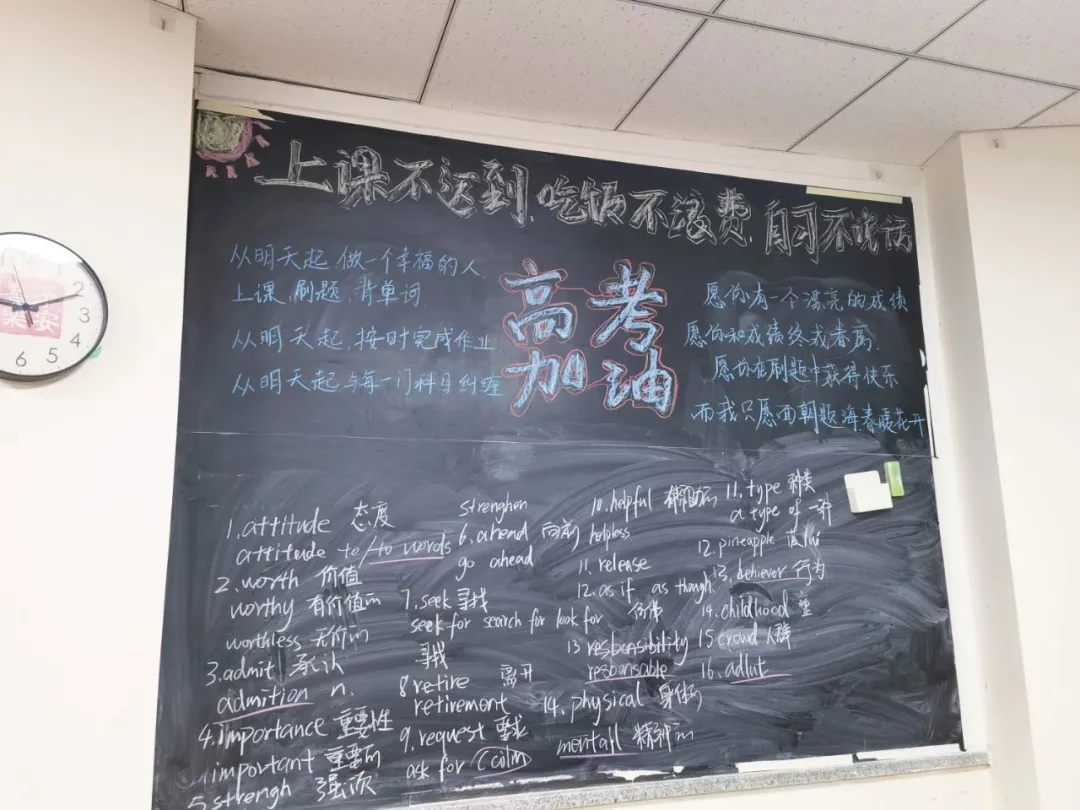 上课不迟到、吃饭不浪费、自习不说话
从明天起、做一个幸福的人
上课、刷题、背单词
从明天起、按时完成作业
从明天起与每一门科目纠缠
高考
加油
愿你有一个漂亮的成绩
愿你和成绩终成眷属
愿你在刷题中获得快乐
而我只愿面朝题海春暖花开
1.attitude 态度
attitude to/to words
2.worth 价值
worthy 有价值的
worthless 无价的
3.admit 承认
admition n.
4.importance 重要性
important 重要的
5.strengh
strenghen
6.ahead 向前
go ahead
7.seek 寻找
seek for search for look for
寻找
8 retire 离开
retirement
9.request 要求
ask for
10.helpful 有帮助的
helpless
11.release
12.as if as though
仿佛
13 responsibility
responsable
14.physical 身体的
mentall 精神的
11.type 种类
a type of 一种
12.pineapple
13.behievor 行为
14.childhood
15 crowd 人群
16.adlut
2
3
4
5
6